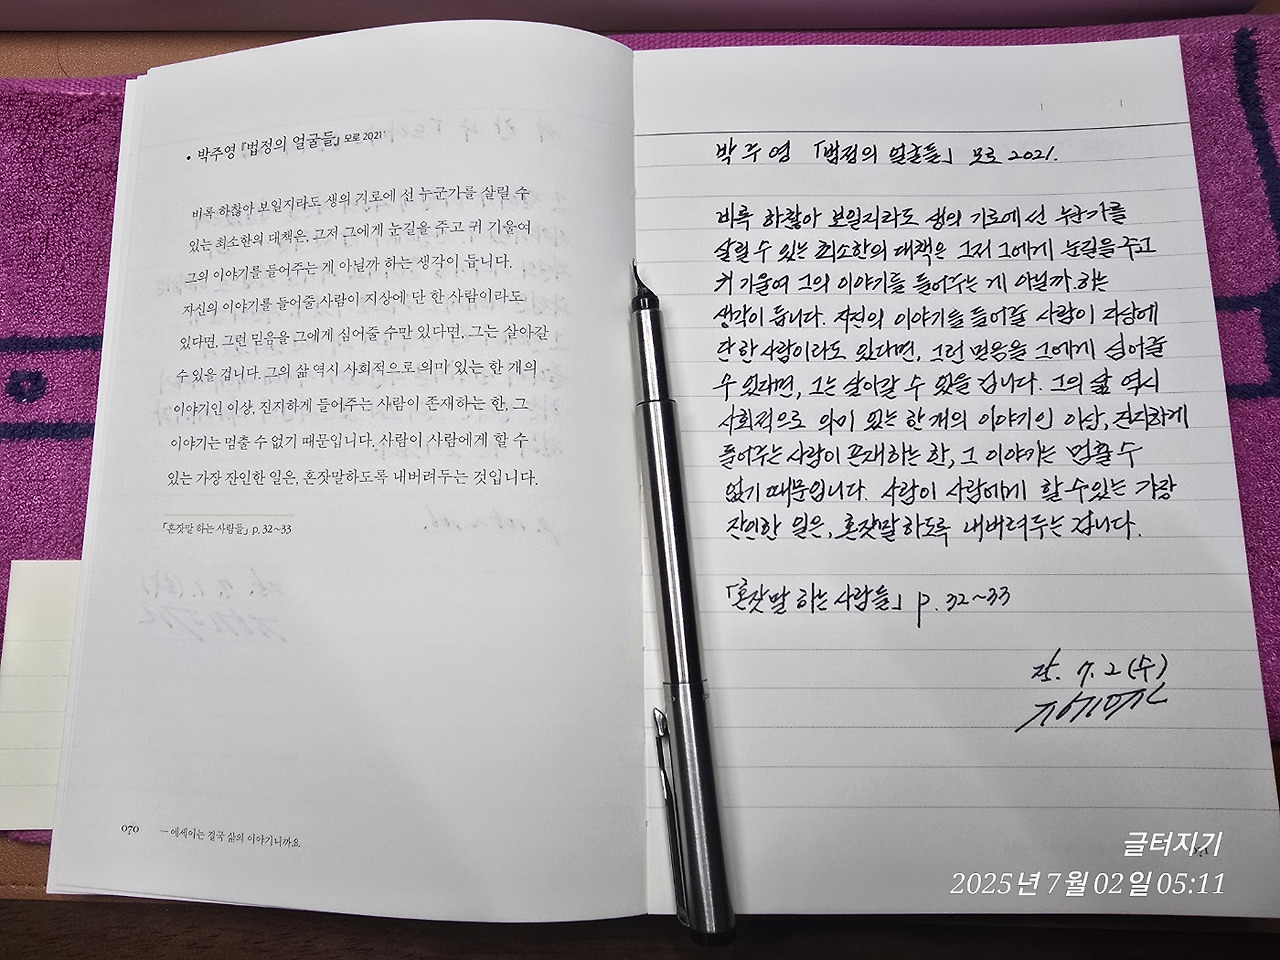 • 박주영 『법정의 얼굴들』 모로 2021
비록 하찮아 보일지라도 생의 기로에 선 누군가를 살릴 수
있는 최소한의 대책은, 그저 그에게 눈길을 주고 귀 기울여
그의 이야기를 들어주는 게 아닐까 하는 생각이 듭니다.
자신의 이야기를 들어줄 사람이 지상에 단 한 사람이라도
있다면, 그런 믿음을 그에게 심어줄 수만 있다면, 그는 살아갈
수 있을 겁니다. 그의 삶 역시 사회적으로 의미 있는 한 개의
이야기인 이상, 진지하게 들어주는 사람이 존재하는 한, 그
이야기는 멈출 수 없기 때문입니다. 사람이 사람에게 할 수
있는 가장 잔인한 일은, 혼잣말하도록 내버려두는 것입니다.
「혼잣말 하는 사람들」 p. 32~33
070 — 에세이는 결국 삶의 이야기니까요
박주영 「법정의 얼굴들」 모로 2021.
비록 하찮아 보일지라도 생의 기로에 선 누군가를
살릴 수 있는 최소한의 대책은 그저 그에게 눈길을 주고
귀 기울여 그의 이야기를 들어주는 게 아닐까 하는
생각이 듭니다. 자신의 이야기를 들어줄 사람이 지상에
단 한 사람이라도 있다면, 그런 믿음을 그에게 심어줄
수 있다면, 그는 살아갈 수 있을 겁니다. 그의 삶 역시
사회적으로 의미 있는 한 개의 이야기인 이상, 진지하게
들어주는 사람이 존재하는 한, 그 이야기는 멈출 수
없기 때문입니다. 사람이 사람에게 할 수 있는 가장
잔인한 일은, 혼잣말 하도록 내버려두는 겁니다.
「혼잣말 하는 사람들」 p. 32~33
25. 7. 2 (수)
글터지기
2025년 7월 02일 05:11